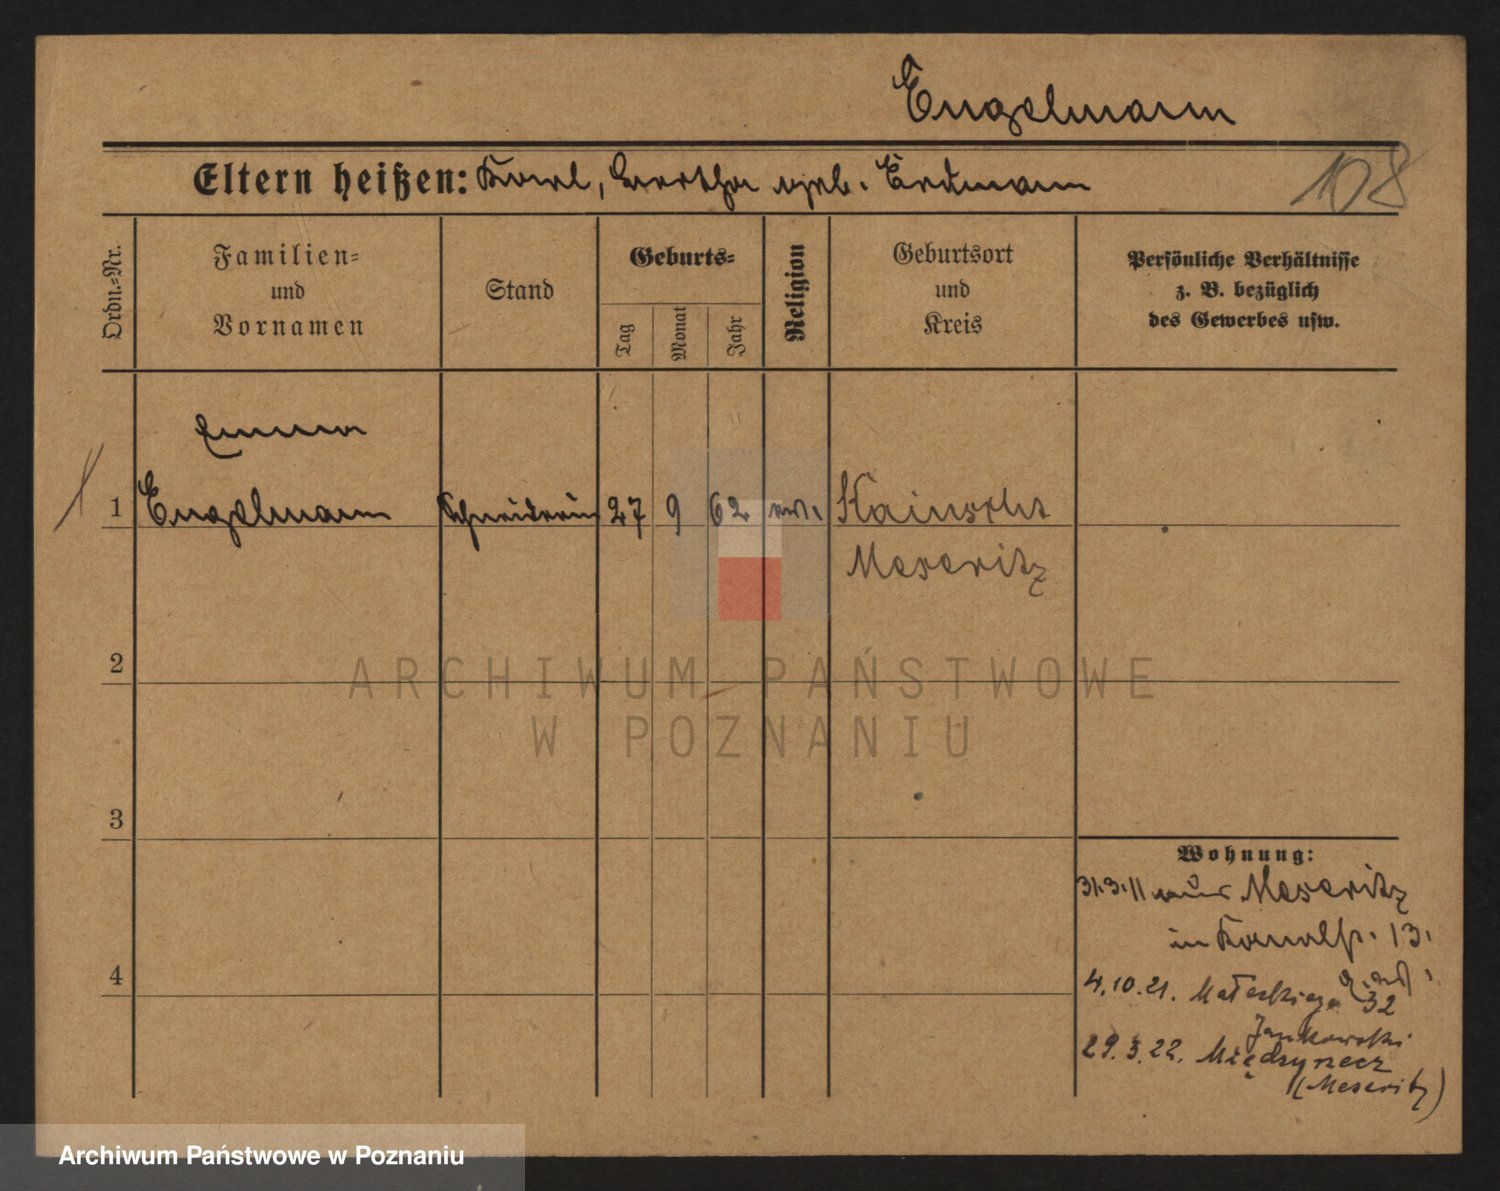 Engelmann
Eltern heißen: Karl, Bertha geb. Erdmann
108
Ordn.-Nr.
Familien-
und
Vornamen
Stand
Geburts-
Tag
Monat
Jahr
Religion
Geburtsort
und
Kreis
Persönliche Verhältnisse
z. B. bezüglich
des Gewerbes usw.
Emma
1 Engelmann Schneiderin 27 9 62 ev. Kainscht
Meseritz
2
3
4
Wohnung:
31.3.11 aus Meseritz
in Kanalstr. 13.
4.10.21. Małeckiego 32
Jankowski
29.3.22. Międzyrzecz
(Meseritz)
ARCHIWUM PAŃSTWOWE
W POZNANIU
Archiwum Państwowe w Poznaniu